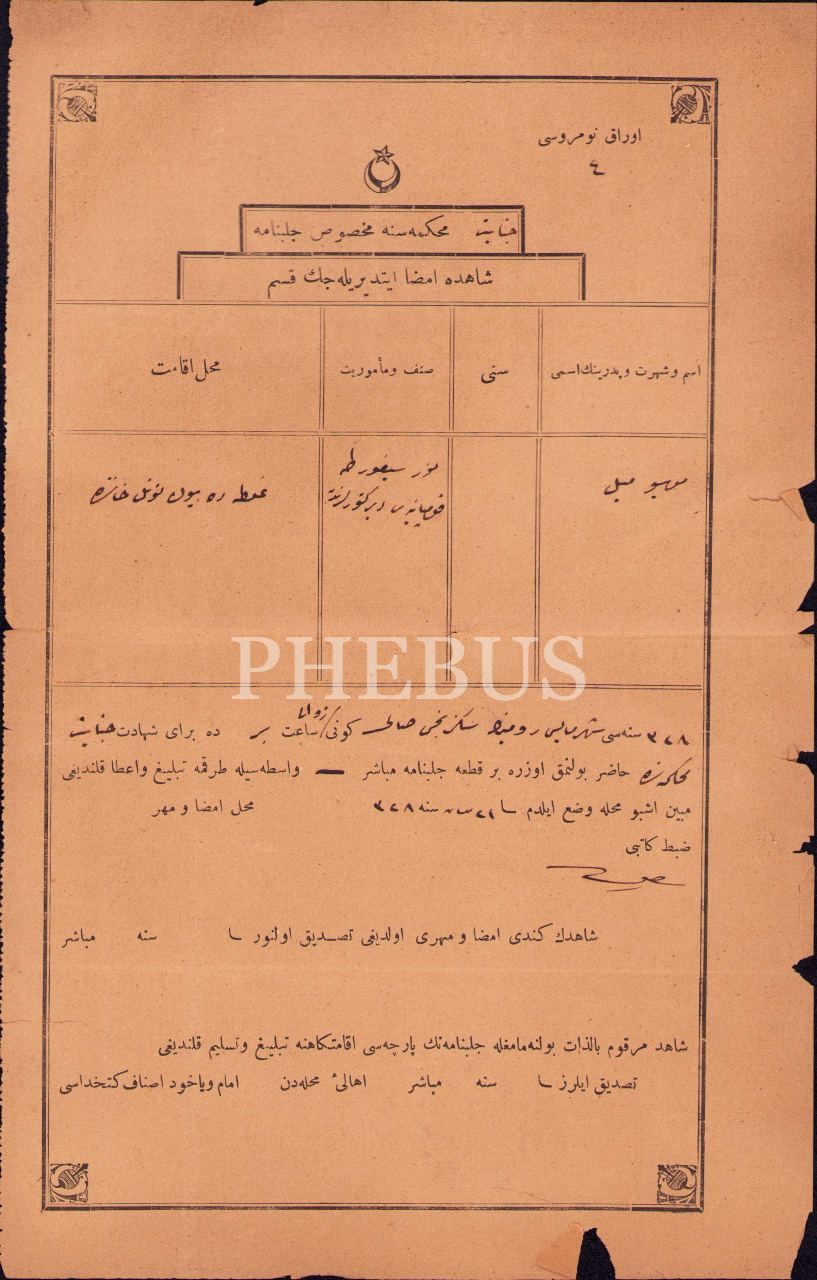 اوراق نومروسی
٤
جنایت محكمه‌سنه مخصوص جلبنامه
شاهده امضا ایتدیریله‌جك قسم
اسم و شهرت و پدرینك اسمی
سنی
صنف و مأموریت
محل اقامت
موسیو میل
قومپانیه‌سی دیركتورلرندن
غلطه ده تونل خاننده
PHEBUS
٣٢٨ سنه‌سی شهر مایس رومینك سكزنجی صالی كونی زوالی ساعت بر ده برای شهادت جنایت
محكمه‌سنده حاضر بولنمق اوزره بر قطعه جلبنامه مباشر — واسطه‌سیله طرفمه تبلیغ واعطا قلندیغی
مبین اشبو محله وضع ایلدم ٢١ نیسان سنه ٣٢٨ محل امضا و مهر
ضبط كاتبی
شاهدك كندی امضا و مهری اولدیغی تصدیق اولنور سنه مباشر
شاهد مرقوم بالذات بولنه‌مامغله جلبنامه‌نك پارچه‌سی اقامتكاهنه تبلیغ وتسلیم قلندیغی
تصدیق ایلرز سنه مباشر اهالیٔ محله‌دن امام ویاخود اصناف كتخداسی